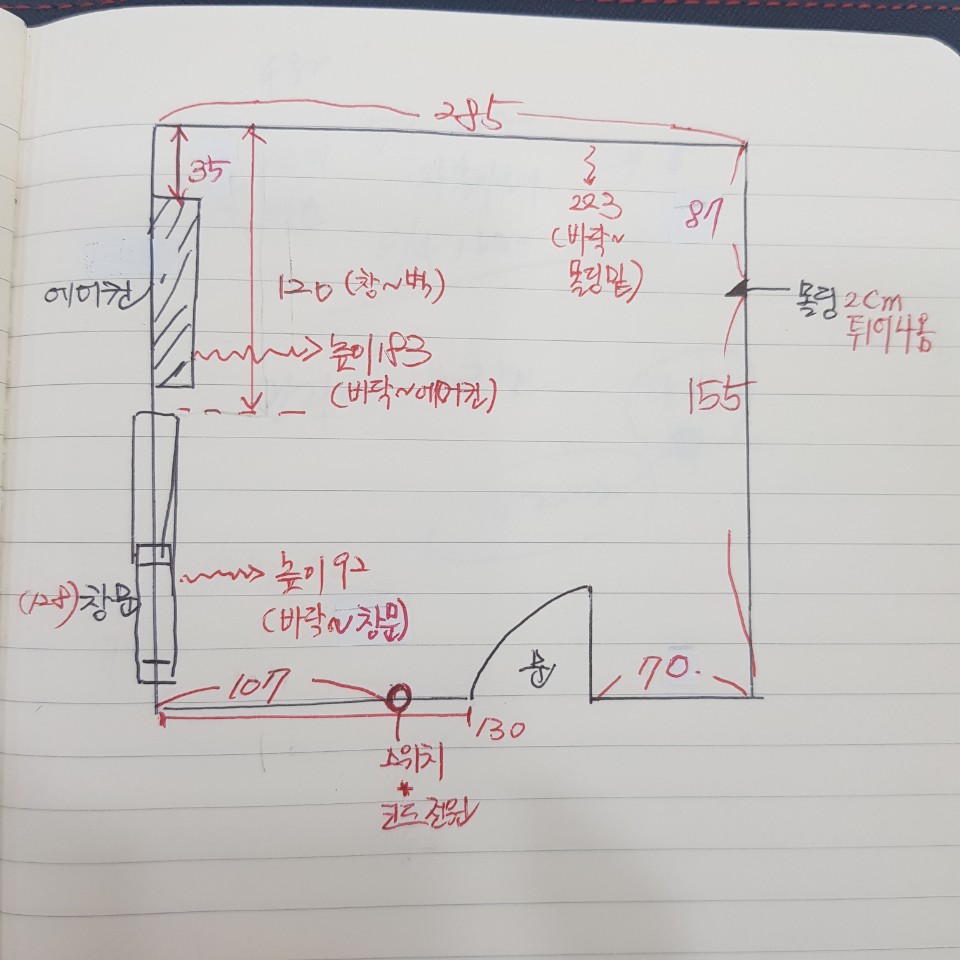 285
35
223
(바닥~
몰딩밑)
87
에어컨
120 (창~벽)
몰딩 2cm
튀어나옴
높이 183
(바닥~에어컨)
155
높이 92
(128) 창문
(바닥~창문)
107
문
70.
130
스위치
+
코드전원